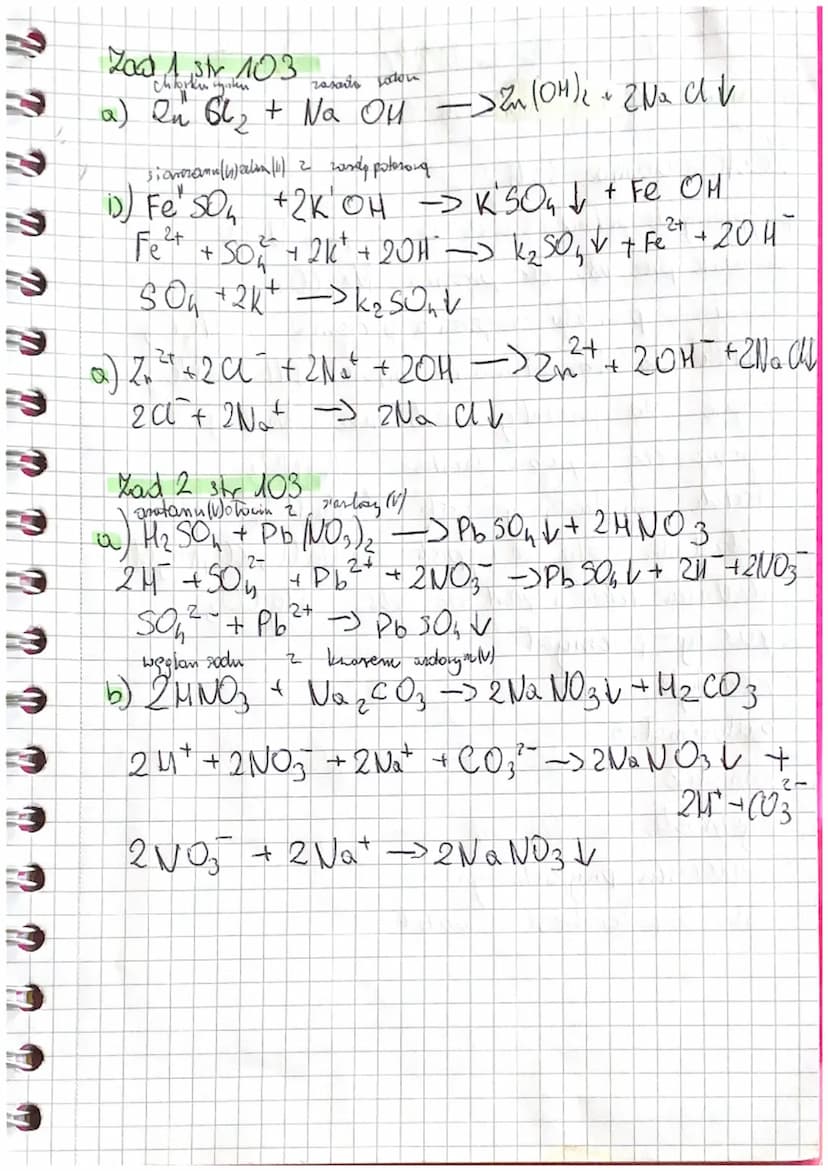 Zad 1 str 103
chlorku cynku zasada sodu
a) Zn^II Cl₂ + Na OH → Zn(OH)₂ + 2Na Cl↓
siarczanu(VI) żelaza(II) z zasadą potasową
b) Fe^II SO₄ + 2K^I OH → K^I SO₄↓ + Fe OH
Fe²⁺ + SO₄²⁻ + 2K⁺ + 2OH⁻ → K₂SO₄↓ + Fe²⁺ + 2OH⁻
SO₄ + 2K⁺ → K₂SO₄↓
a) Zn²⁺ + 2Cl⁻ + 2Na⁺ + 2OH → Zn²⁺ + 2OH⁻ + 2Na Cl↓
2Cl⁻ + 2Na⁺ → 2Na Cl↓
Zad 2 str 103
azotanu(V) ołowiu z (V)
a) H₂SO₄ + Pb(NO₃)₂ → PbSO₄↓ + 2HNO₃
2H⁻ + SO₄²⁻ + Pb²⁺ + 2NO₃⁻ → PbSO₄↓ + 2H⁻ + 2NO₃⁻
SO₄²⁻ + Pb²⁺ → PbSO₄↓
węglan sodu z kwasem azotowym(V)
b) 2HNO₃ + Na₂CO₃ → 2NaNO₃↓ + H₂CO₃
2H⁺ + 2NO₃⁻ + 2Na⁺ + CO₃²⁻ → 2NaNO₃↓ +
2H⁺ + CO₃²⁻
2NO₃⁻ + 2Na⁺ → 2NaNO₃↓